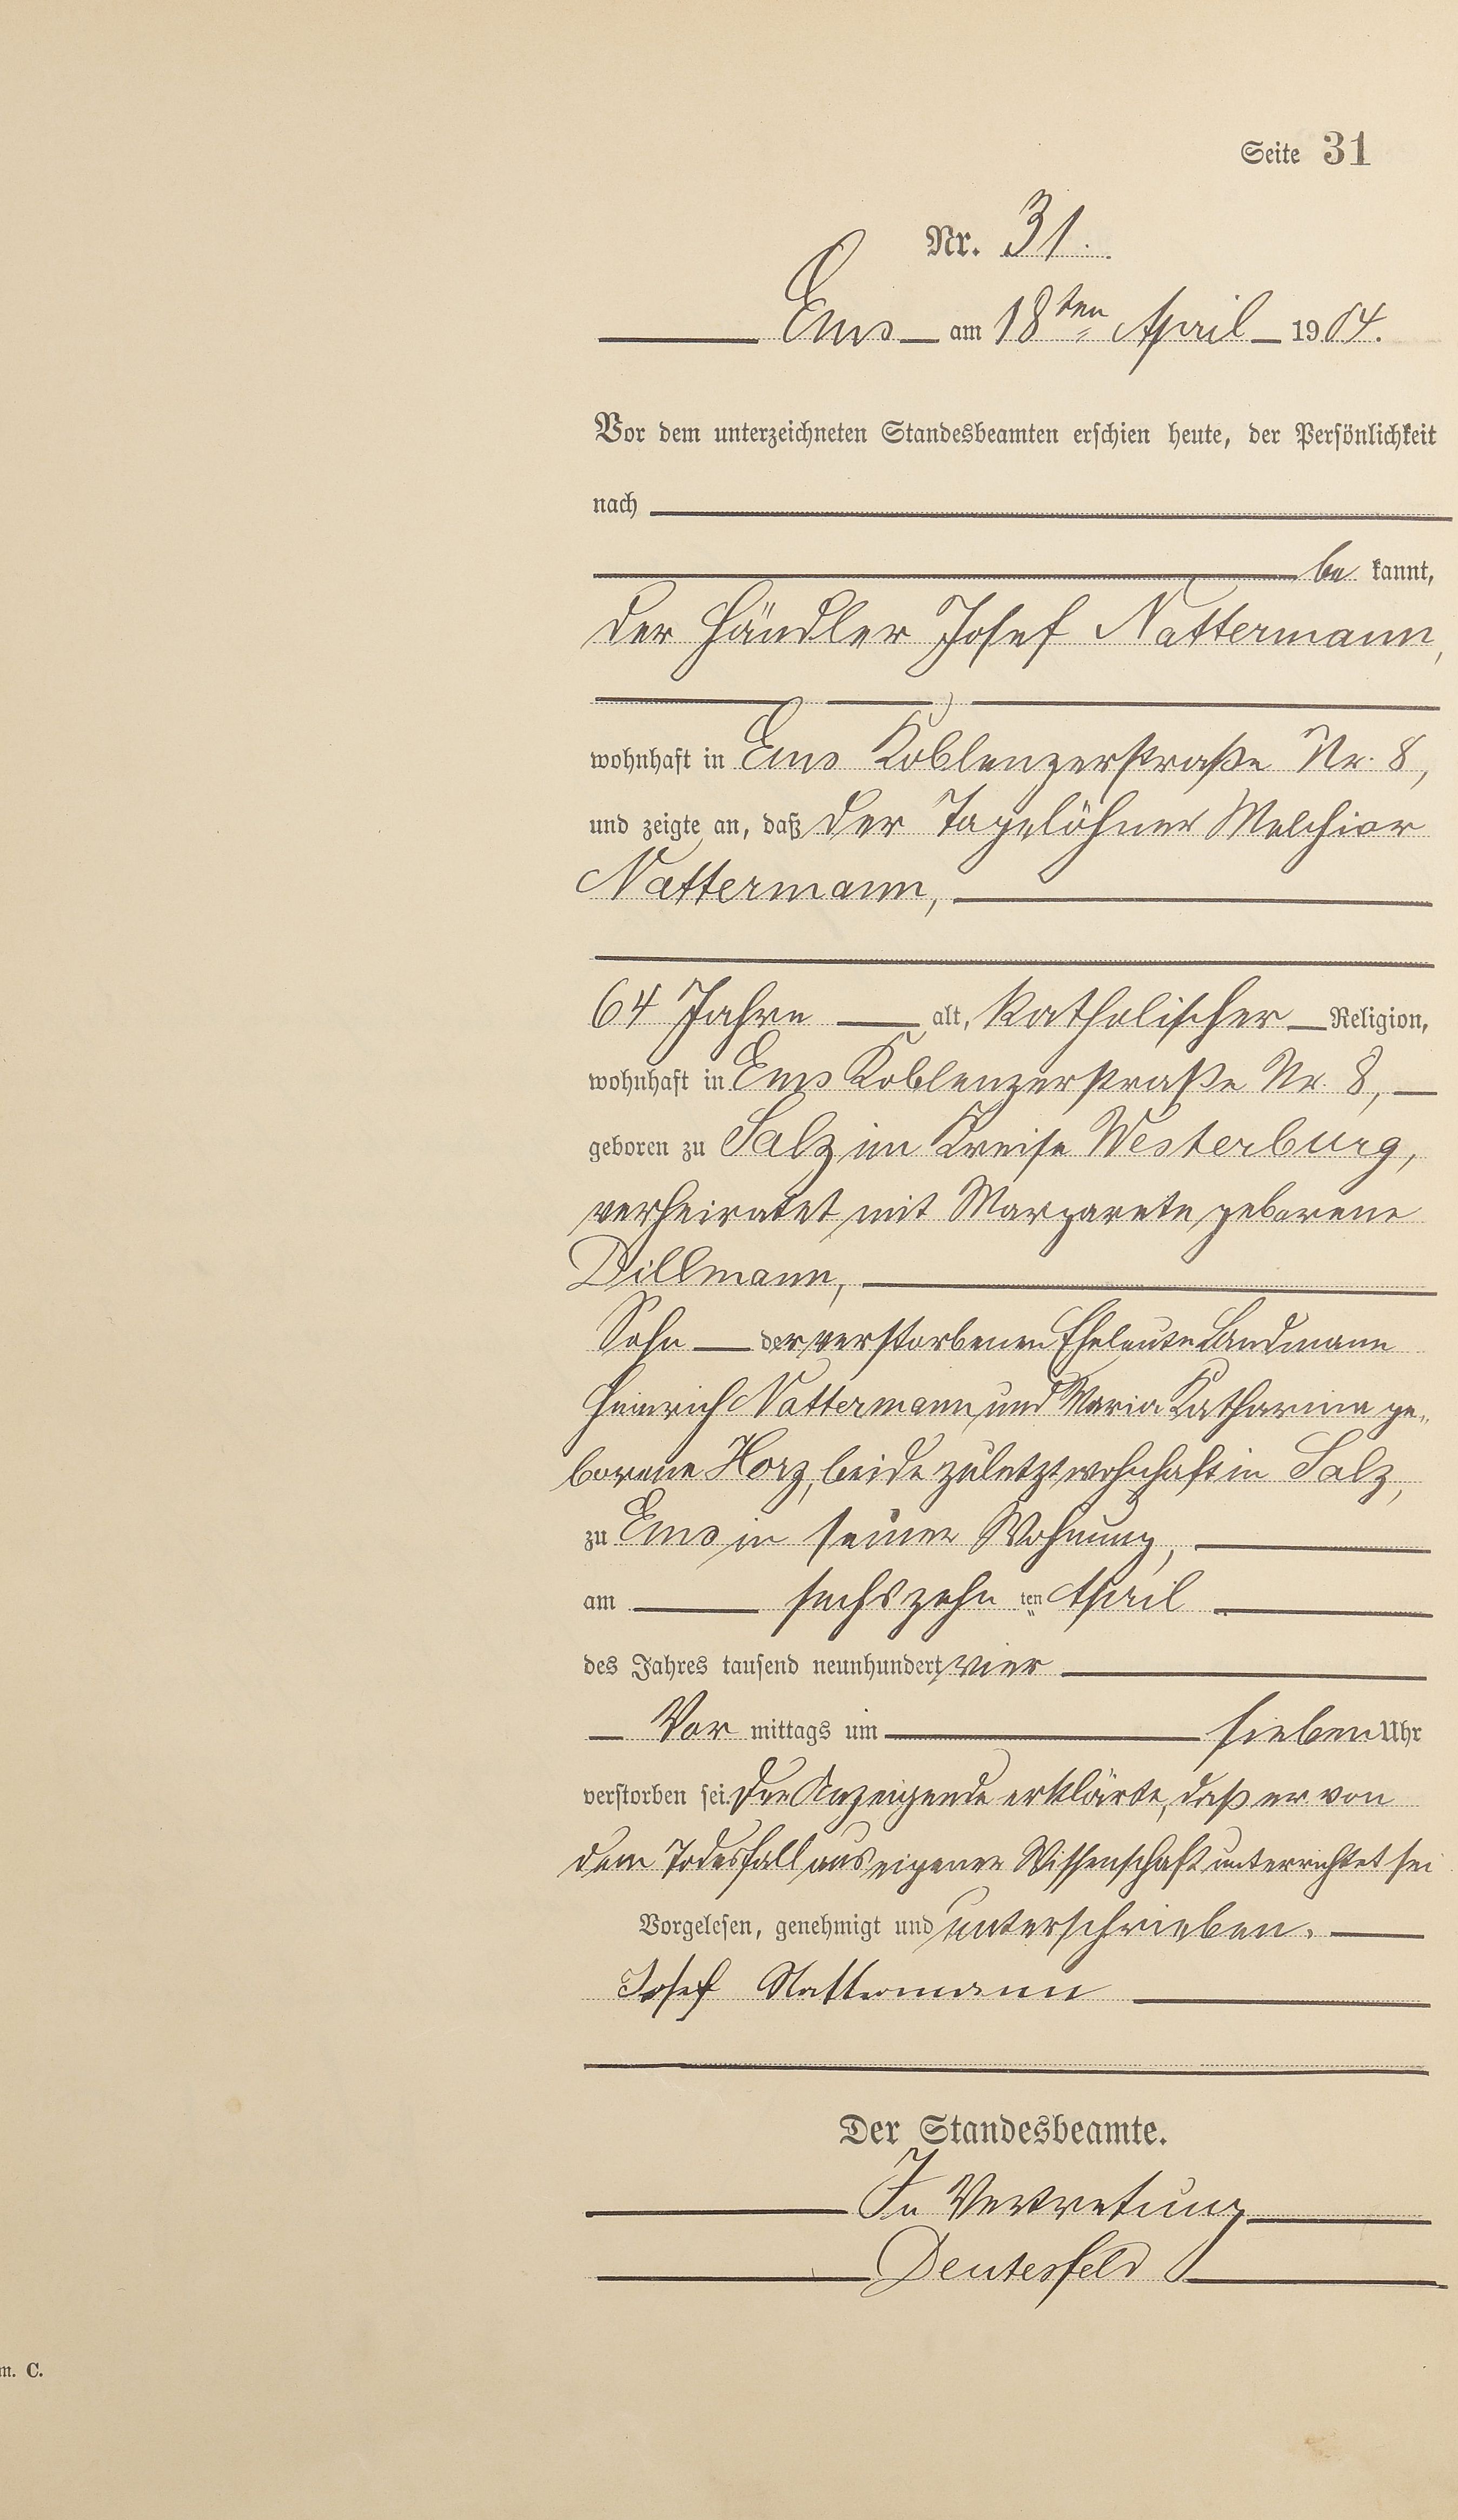 Seite 31
Nr. 31.
Ems am 18ten April 1904.
Vor dem unterzeichneten Standesbeamten erschien heute, der Persönlichkeit
nach
be kannt,
der Händler Josef Nattermann,
wohnhaft in Ems Koblenzerstraße Nr. 8,
und zeigte an, daß der Tagelöhner Melchior
Nattermann,
64 Jahre alt, katholischer Religion,
wohnhaft in Ems Koblenzerstraße Nr. 8,
geboren zu Salz im Kreise Westerburg,
verheiratet mit Margarete geborene
Dillmann,
Sohn der verstorbenen Eheleute Landmann
Heinrich Nattermann und Maria Katharina ge„
borene Horz, beide zuletzt wohnhaft in Salz,
zu Ems in seiner Wohnung,
am sechszehn ten April
des Jahres tausend neunhundert vier
Vor mittags um sieben Uhr
verstorben sei. Der Anzeigende erklärte, daß er von
dem Todesfall aus eigener Wissenschaft unterrichtet sei
Vorgelesen, genehmigt und unterschrieben.
Josef Nattermann
Der Standesbeamte.
In Vertretung
Deutesfeld
m. C.